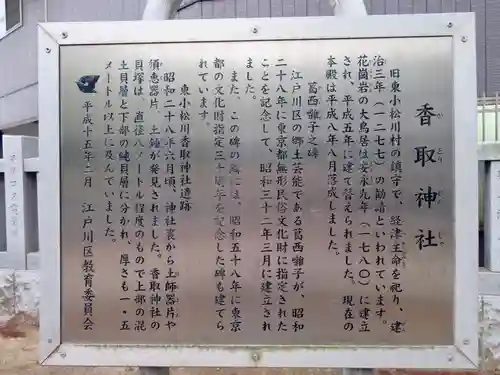 香取神社
かとりじんじゃ
旧東小松川村の鎮守で、経津主命を祀り、建
治三年(一二七七)の勧請といわれています。
花崗岩の大鳥居は安永九年(一七八〇)に建立
され、平成五年に建て替えられました。現在の
本殿は平成八年八月落成しました。
葛西囃子之碑
江戸川区の郷土芸能である葛西囃子が、昭和
二十八年に東京都無形民俗文化財に指定された
ことを記念して、昭和三十二年三月に建立され
ました。
また、この碑の隣には、昭和五十八年に東京
都の文化財指定三十周年を記念した碑も建てら
れています。
東小松川香取神社遺跡
昭和二十八年六月頃、神社裏から土師器片や
須恵器片、土錘が発見されました。香取神社の
貝塚は、直径八メートル程度のもので上部の混
土貝層と下部の純貝層に分かれ、厚さも一・五
メートル以上に及んでいました。
平成十五年二月 江戸川区教育委員会